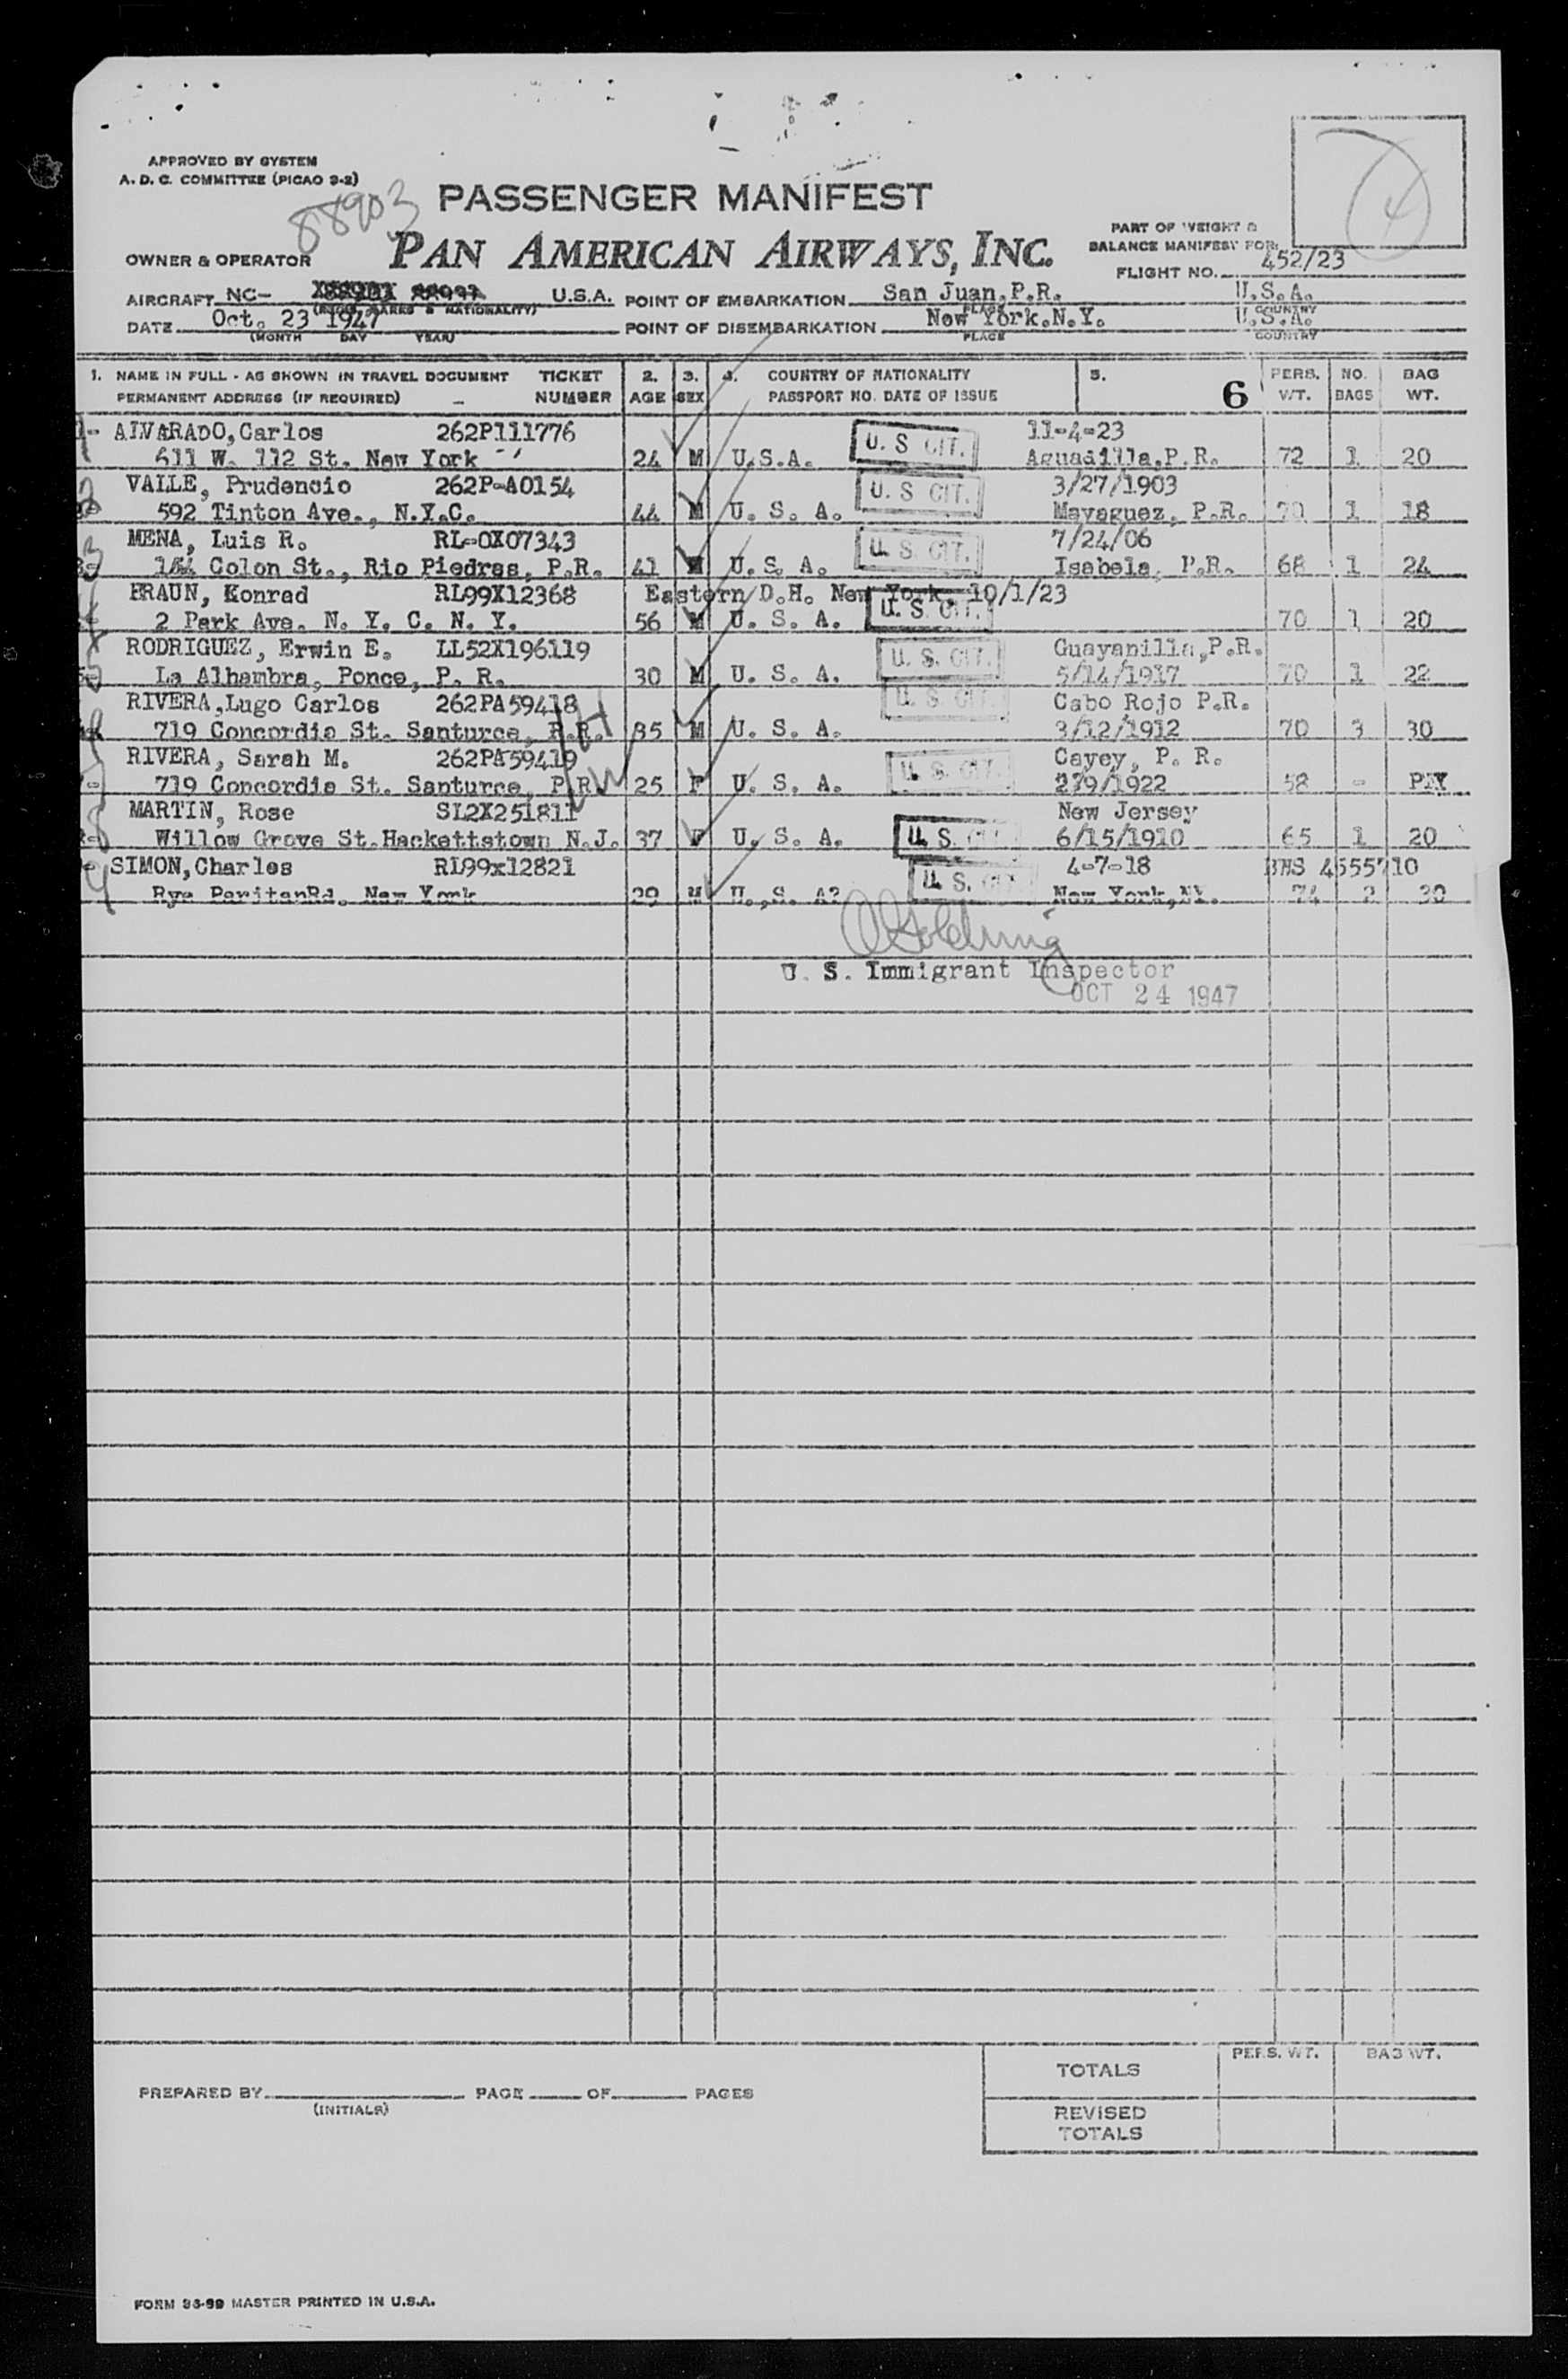 APPROVED BY SYSTEM
A. D. C. COMMITTEE (PICAO 3-2)
88903
PASSENGER MANIFEST
4
OWNER & OPERATOR PAN AMERICAN AIRWAYS, INC.
PART OF WEIGHT &
BALANCE MANIFEST FOR:
FLIGHT NO. 452/23
AIRCRAFT NC- U.S.A. POINT OF EMBARKATION San Juan, P.R. U.S.A.
(MARKS & NATIONALITY) PLACE COUNTRY
DATE Oct. 23 1947 POINT OF DISEMBARKATION New York.N.Y. U.S.A.
(MONTH DAY YEAR) PLACE COUNTRY
1. NAME IN FULL - AS SHOWN IN TRAVEL DOCUMENT TICKET 2. 3. 4. COUNTRY OF NATIONALITY 5. PERS. NO. BAG
PERMANENT ADDRESS (IF REQUIRED) NUMBER AGE SEX PASSPORT NO. DATE OF ISSUE 6 WT. BAGS WT.
ALVARADO,Carlos 262P111776 U. S CIT. 11-4-23
611 W. 112 St. New York 24 M U.S.A. Aguadilla,P.R. 72 1 20
VALLE, Prudencio 262P-A0154 U. S CIT. 3/27/1903
592 Tinton Ave., N.Y.C. 44 M U. S. A. Mayaguez, P.R. 70 1 18
MENA, Luis R. RL-0X07343 U. S CIT. 7/24/06
Colon St., Rio Piedras, P.R. 41 M U. S. A. Isabela, P.R. 68 1 24
BRAUN, Konrad RL99X12368 Eastern D.H. New York, 10/1/23
2 Park Ave. N. Y. C. N. Y. 56 M U. S. A. U. S. CIT. 70 1 20
RODRIGUEZ, Erwin E. LL52X196119 U. S. CIT. Guayanilla,P.R.
La Alhambra, Ponce, P. R. 30 M U. S. A. 5/14/1917 70 1 22
RIVERA,Lugo Carlos 262PA59418 U. S CIT. Cabo Rojo P.R.
719 Concordia St. Santurce, P.R. 35 M U. S. A. 3/12/1912 70 3 30
RIVERA, Sarah M. 262PA59419 U. S. CIT. Cayey, P. R.
719 Concordia St. Santurce, P.R. 25 F U. S. A. 2/9/1922 58 -
MARTIN, Rose SL2X251811 New Jersey
Willow Grove St.Hackettstown N.J. 37 F U. S. A. U. S. CIT. 6/15/1910 65 1 20
SIMON,Charles RL99x12821 U. S. CIT. 4-7-18 4555710
Rye New York 29 M U.,S. A? New York,NY. 74 2 30
U. S. Immigrant Inspector
OCT 24 1947
TOTALS PERS. WT. BAG WT.
PREPARED BY PAGE OF PAGES
(INITIALS)
REVISED
TOTALS
FORM 36-99 MASTER PRINTED IN U.S.A.